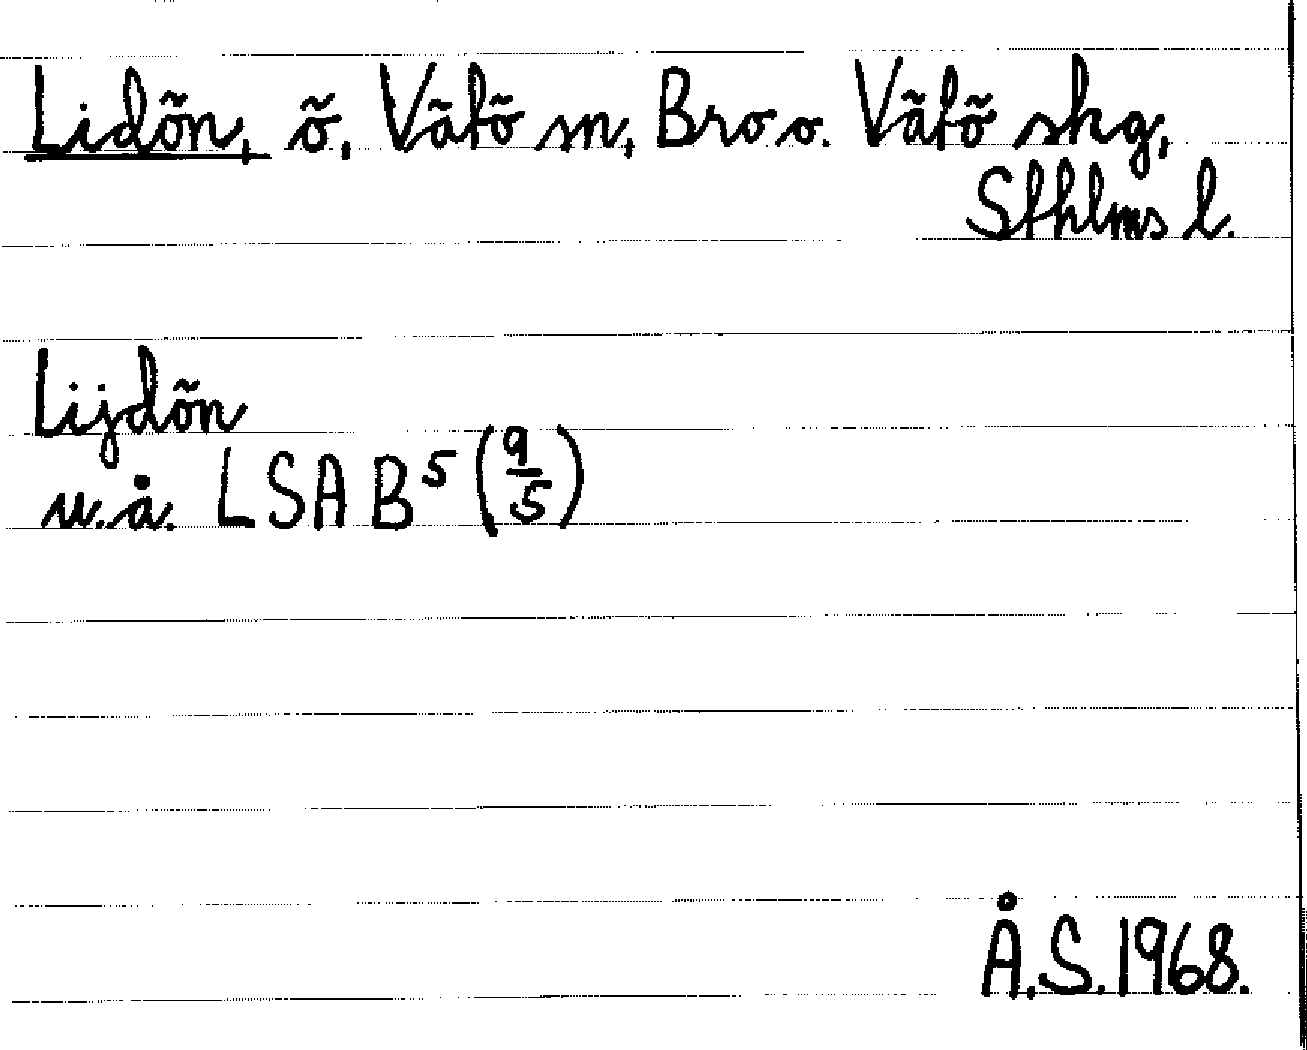 Lidön, ö, Vätö sn, Bro o. Vätö skg,
Sthlms l.
Lijdön
u.å. LSA B⁵ (9/5)
Å.S. 1968.